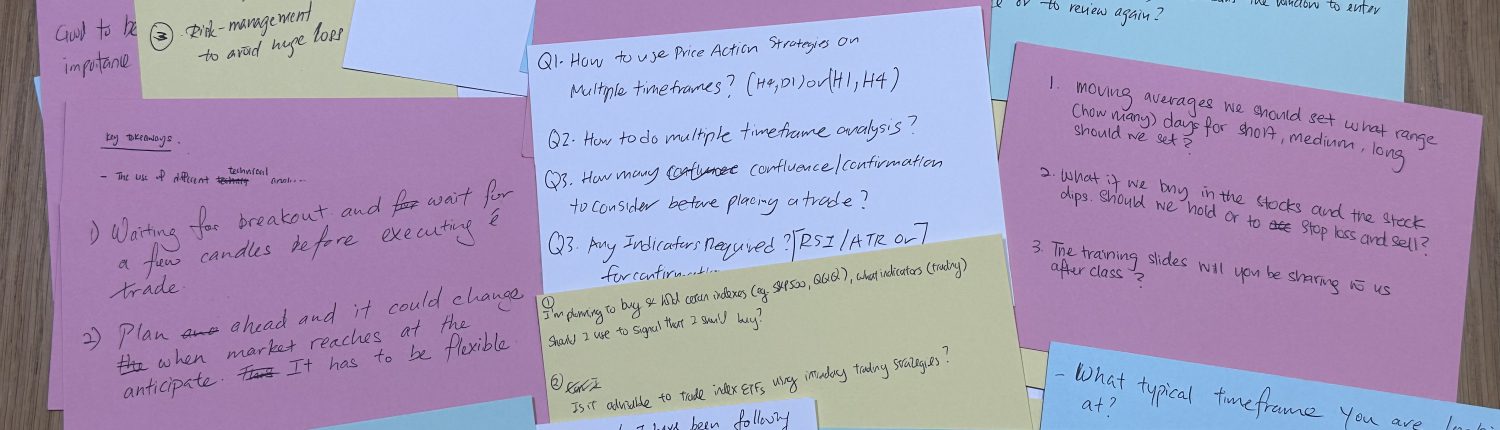 Good to be
importance
③ Risk-management
to avoid huge loss
key takeaways.
- The use of different technical
1) Waiting for breakout and wait for
a few candles before executing
trade.
2) Plan ahead and it could change
when market reaches at the
anticipate. It has to be flexible.
Q1. How to use Price Action Strategies on
Multiple timeframes? (H4, D1) or (H1, H4)
Q2. How to do multiple timeframe analysis?
Q3. How many confluence/confirmation
to consider before placing a trade?
Q3. Any Indicators Required? [RSI/ATR or]
for
①
I'm planning to buy & hold certain indexes (eg. S&P500, QQQ), what indicators (trading)
should I use to signal that I should buy?
②
Is it advisable to trade index ETFs using intraday trading strategies?
been following
the window to enter
or to review again?
1. moving averages we should set what range
(how many) days for short, medium, long
should we set?
2. what if we buy in the stocks and the stock
dips. Should we hold or to stop loss and sell?
3. The training slides will you be sharing to us
after class?
- What typical timeframe you are
at?